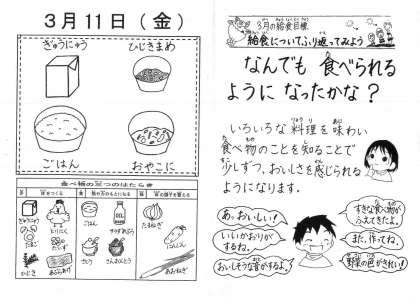 3月11日(金)
ぎゅうにゅう
ひじきまめ
ごはん
おやこに
食べ物の三つのはたらき
ぎゅうにゅう
たまご
ひじき
ごはん
さとう
たまねぎ
あおねぎ
3月の給食目標
給食についてふり返ってみよう
なんでも 食べられる
ように なったかな?
いろいろな 料理を 味わい
食べ物のことを知ることで
少しずつ、おいしさを感じられる
ようになります。
あ、おいしい!
いいかおりが
するね。
おいしそうな音がするよ。
すきな食べ物が
ふえてきたよ。
また、作ってね。
野菜の色がきれい!